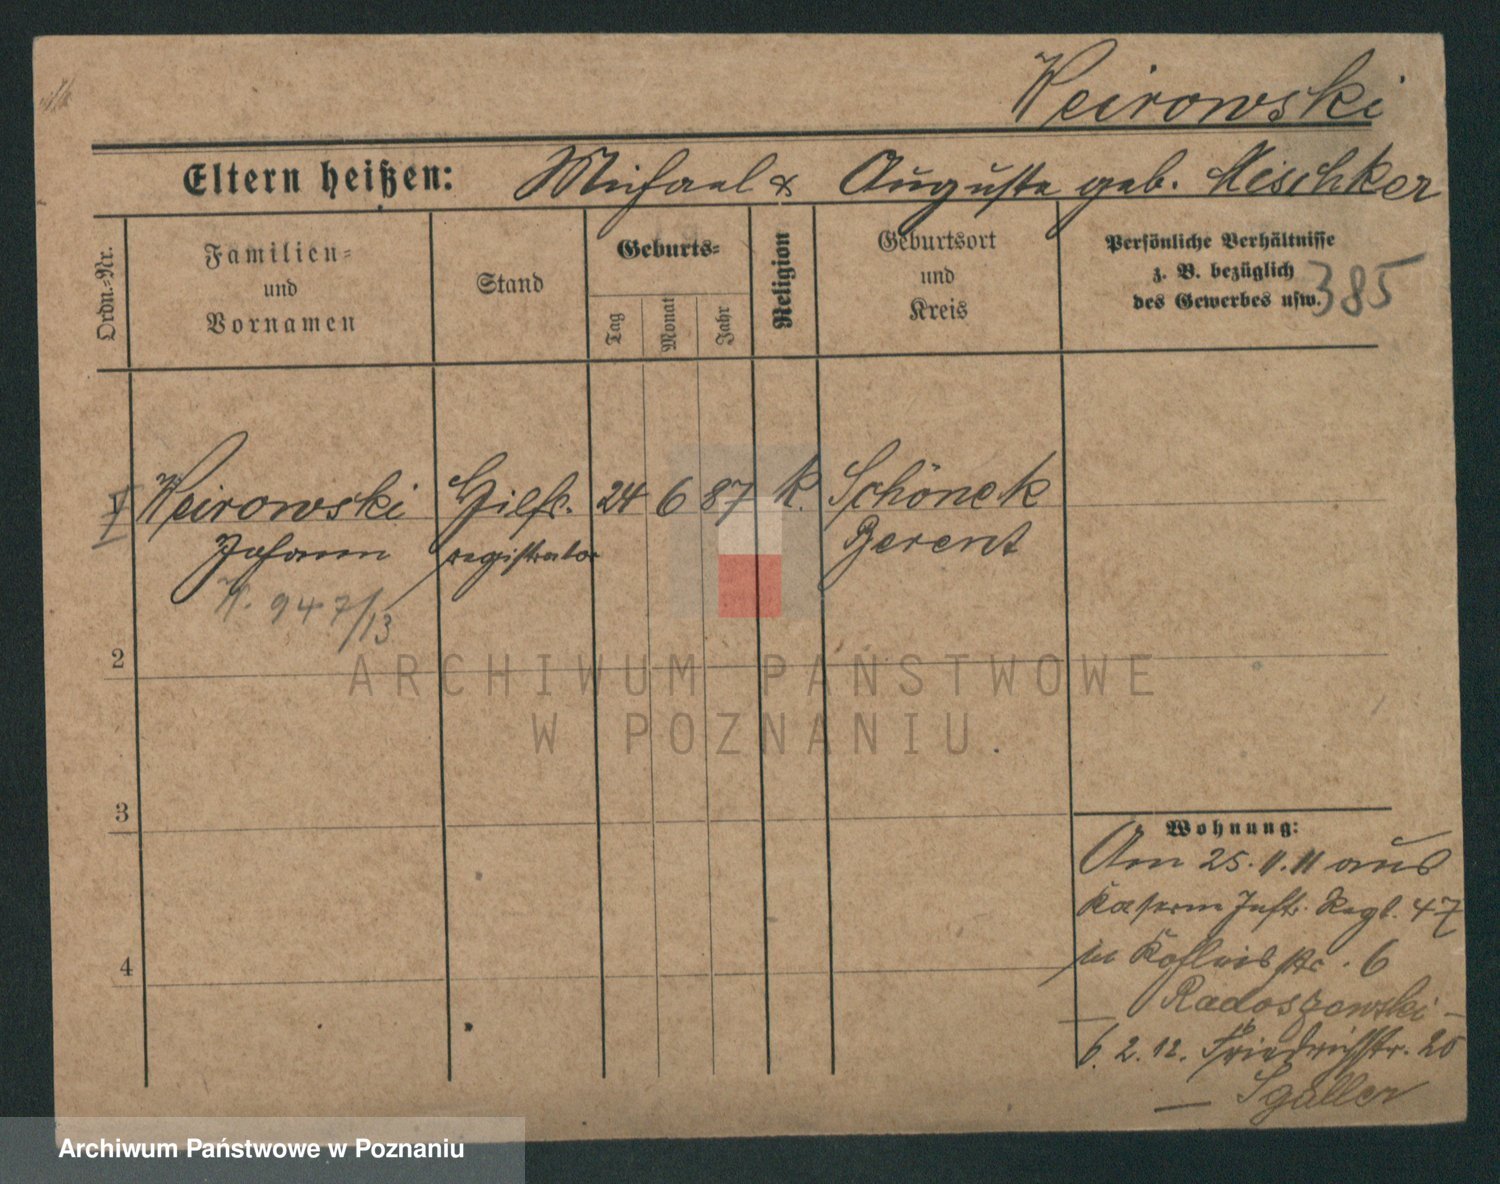 Keirowski
Eltern heißen: Michael & Auguste geb. Mischker
Ordn.-Nr.
Familien-
und
Vornamen
Stand
Geburts-
Tag
Monat
Jahr
Religion
Geburtsort
und
Kreis
Persönliche Verhältnisse
z. B. bezüglich
des Gewerbes usw.
385
Keirowski Hilfs. 24 6 87 k. Schöneck
Johann registrator Berent
K. 947/13
2
ARCHIWUM PAŃSTWOWE
W POZNANIU
3
Wohnung:
Am 25.11.11 aus
Kasern Inft. Regt. 47
4
6
Radoszewski
6.2.12. Friedrichstr. 20
Sgaller
Archiwum Państwowe w Poznaniu